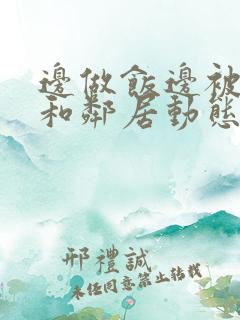 邊做飯邊被
和鄰居動態
邢禮誠
未經同意禁止轉載